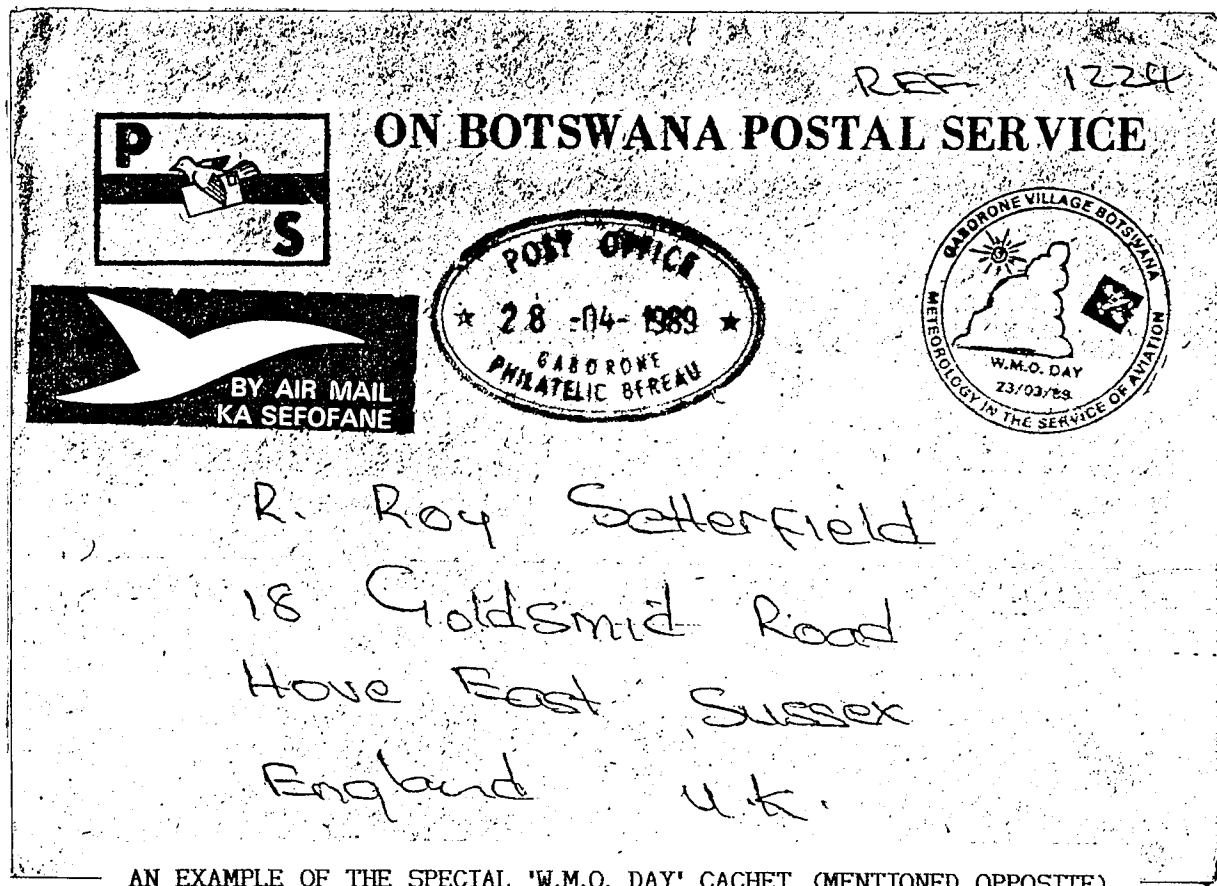 REF 1224
ON BOTSWANA POSTAL SERVICE
P
S
POST OFFICE
28 -04- 1989
GABORONE
PHILATELIC BEREAU
GABORONE VILLAGE BOTSWANA
W.M.O. DAY
23/03/89
METEOROLOGY IN THE SERVICE OF AVIATION
BY AIR MAIL
KA SEFOFANE
R. Roy Setterfield
18 Goldsmid Road
Hove East Sussex
England U.K.
AN EXAMPLE OF THE SPECIAL 'W.M.O. DAY' CACHET (MENTIONED OPPOSITE)